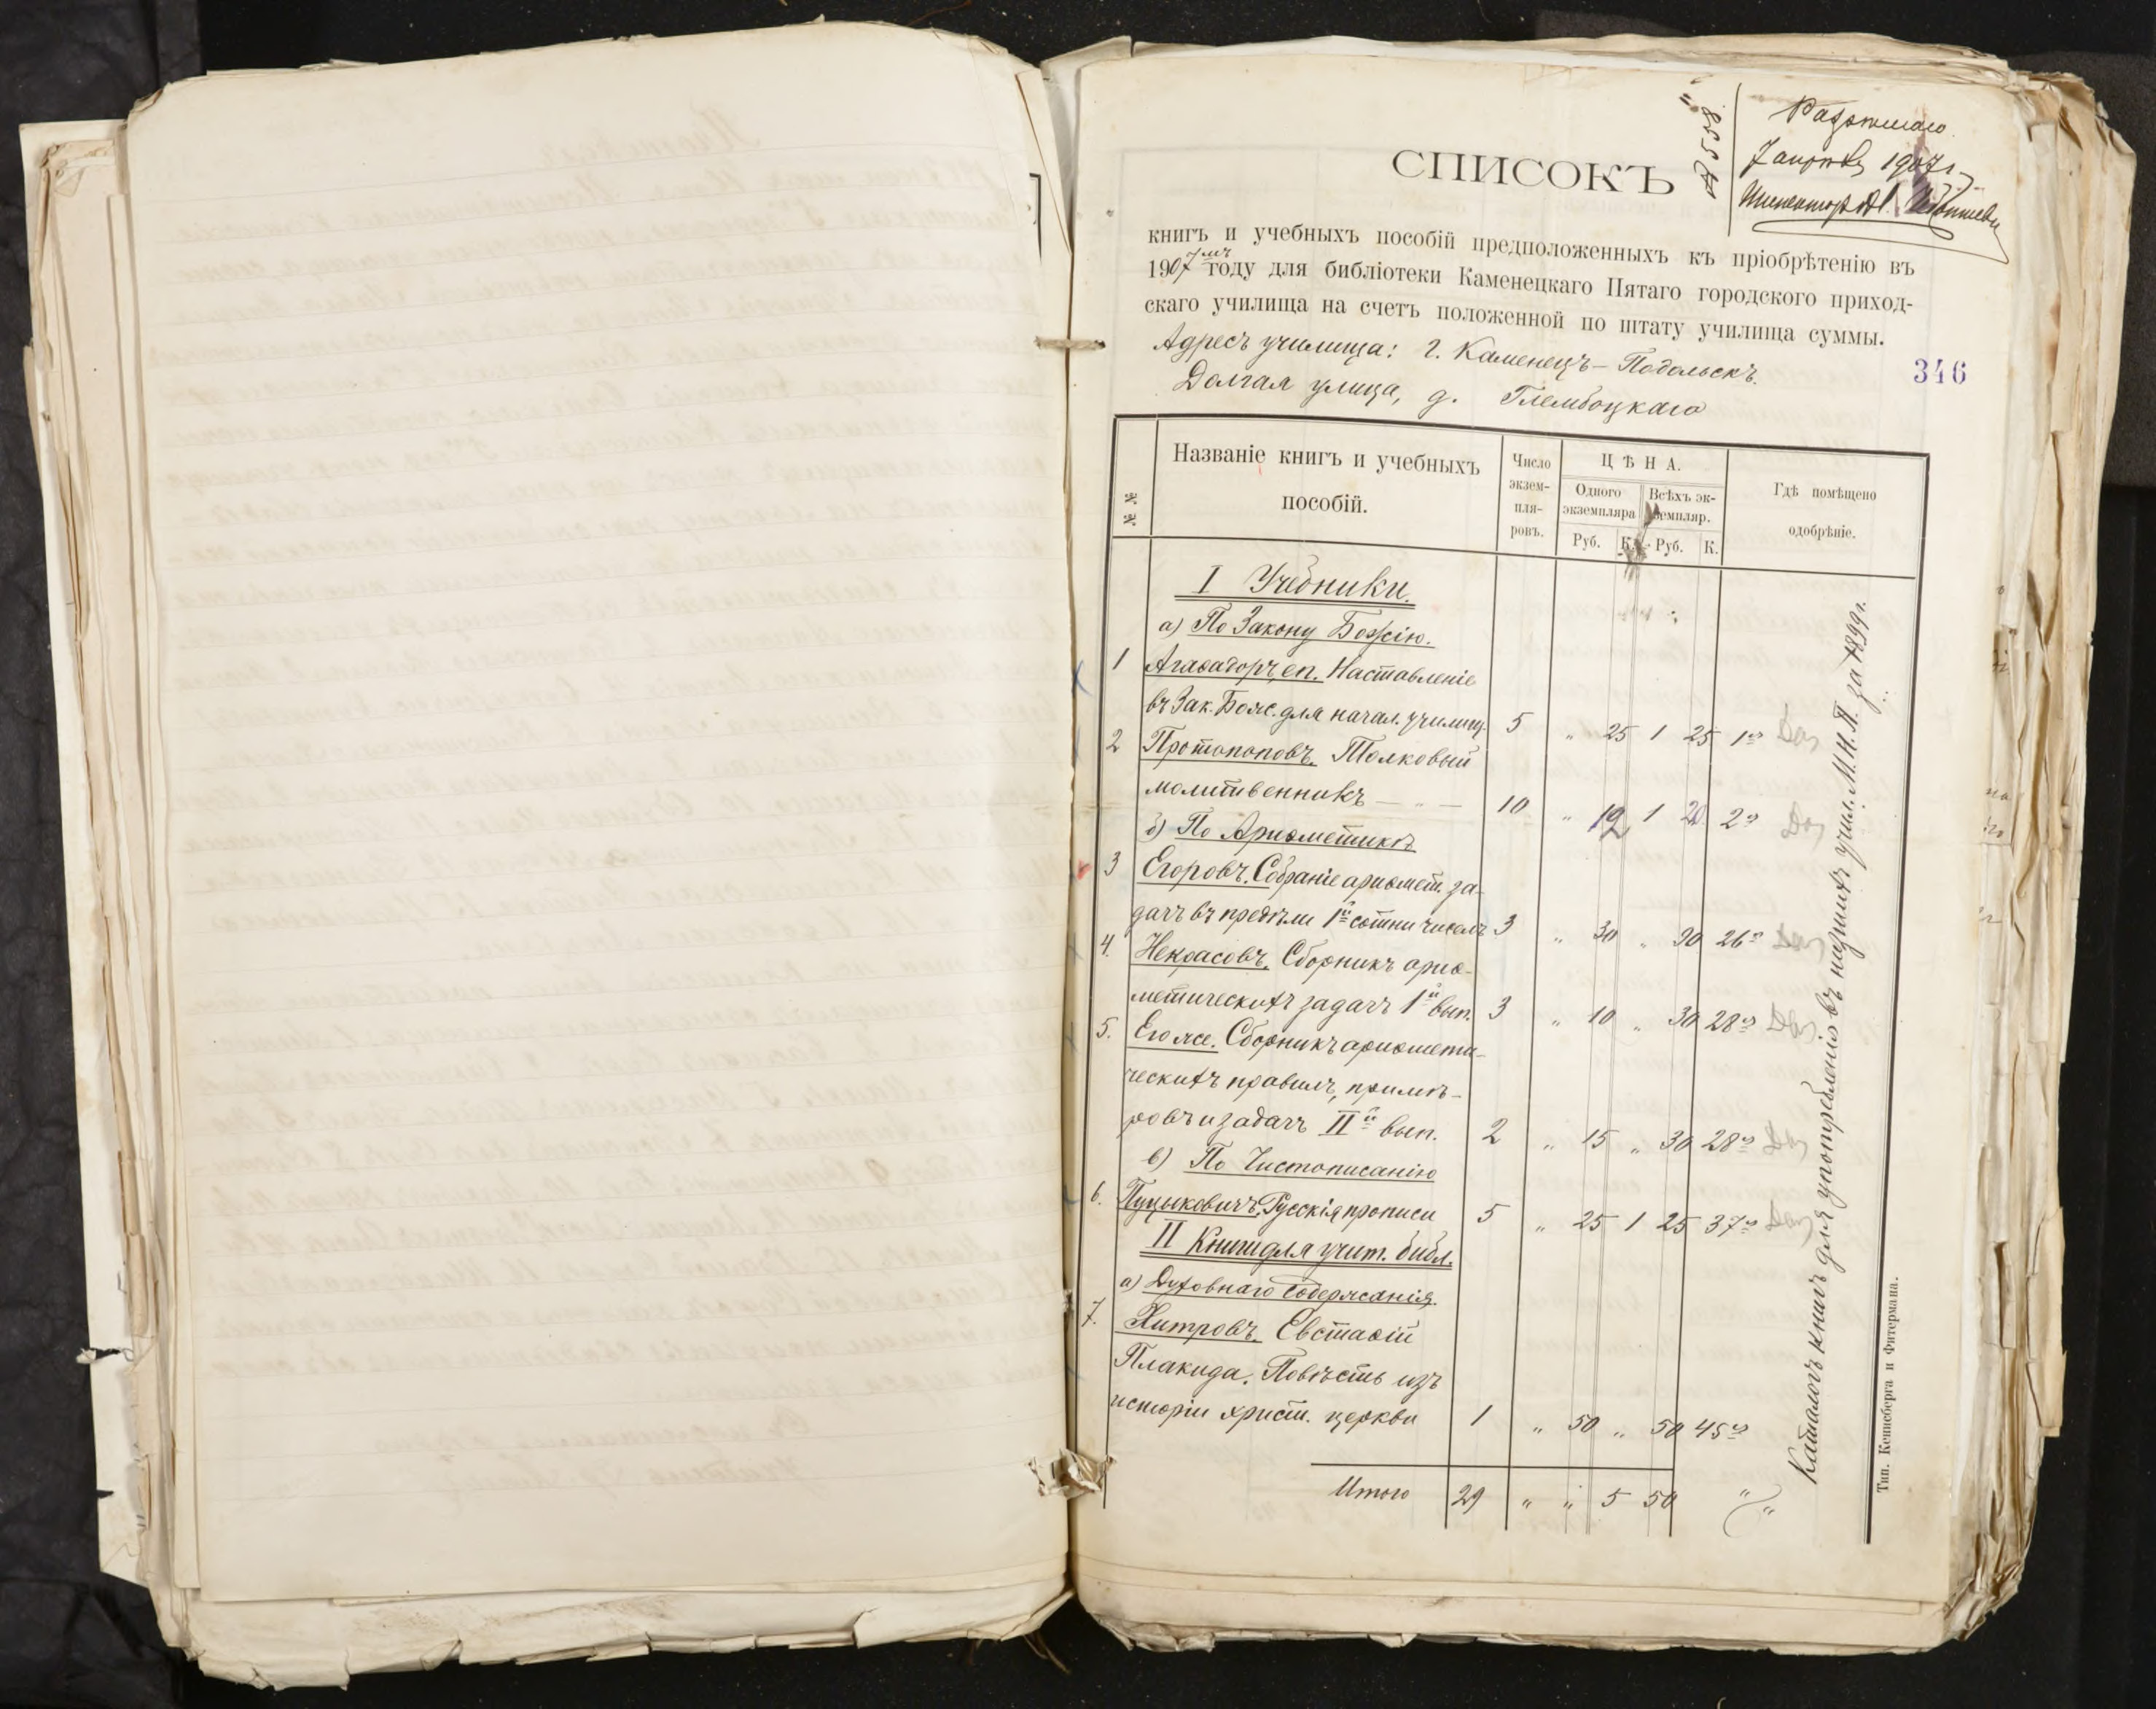 № 558.
Разрѣшаю.
7 апрѣля 1907 г.
Инспекторъ
СПИСОКЪ
книгъ и учебныхъ пособій предположенныхъ къ пріобрѣтенію въ
1907мъ году для библіотеки Каменецкаго Пятаго городского приход-
скаго училища на счетъ положенной по штату училища суммы.
Адресъ училища: г. Каменецъ-Подольскъ.
Долгая улица, д. Глембоцкаго
346
№ №
Названіе книгъ и учебныхъ
пособій.
Число
экзем-
пля-
ровъ.
ЦѢНА.
Одного
экземпляра
Всѣхъ эк-
земпляр.
Руб. К. Руб. К.
Гдѣ помѣщено
одобрѣніе.
I Учебники.
а) По Закону Божію.
1 Агаѳадоръ, еп. Наставленіе
въ Зак. Бож. для начал. училищ. 5 " 25 1 25 1
2 Протопоповъ. Толковый
молитвенникъ — " — 10 " 12 1 20 2
б) По Ариѳметикѣ
3 Егоровъ. Собраніе ариѳмет. за-
дачъ въ предѣлы 1й сотни чиселъ 3 " 30 " 90 26
4. Некрасовъ. Сборникъ ариѳ-
метическихъ задачъ 1й вып. 3 " 10 " 30 28
5. Его же. Сборникъ ариѳмети-
ческихъ правилъ, примѣ-
ровъ и задачъ IIй вып. 2 " 15 " 30 28
в) По Чистописанію
6. Пуцыковичъ. Русскія прописи 5 " 25 1 25 37
II Книги для учит. библ.
а) Духовнаго содержанія.
7. Хитровъ. Евстаѳій
Плакида. Повѣсть изъ
исторіи христ. церкви 1 " 50 " 50 45
Итого 29 " " 5 50 " "
Каталогъ книгъ для употребленія въ низшихъ учил. М. Н. П. за 1899 г.
Тип. Кенисберга и Фитермана.